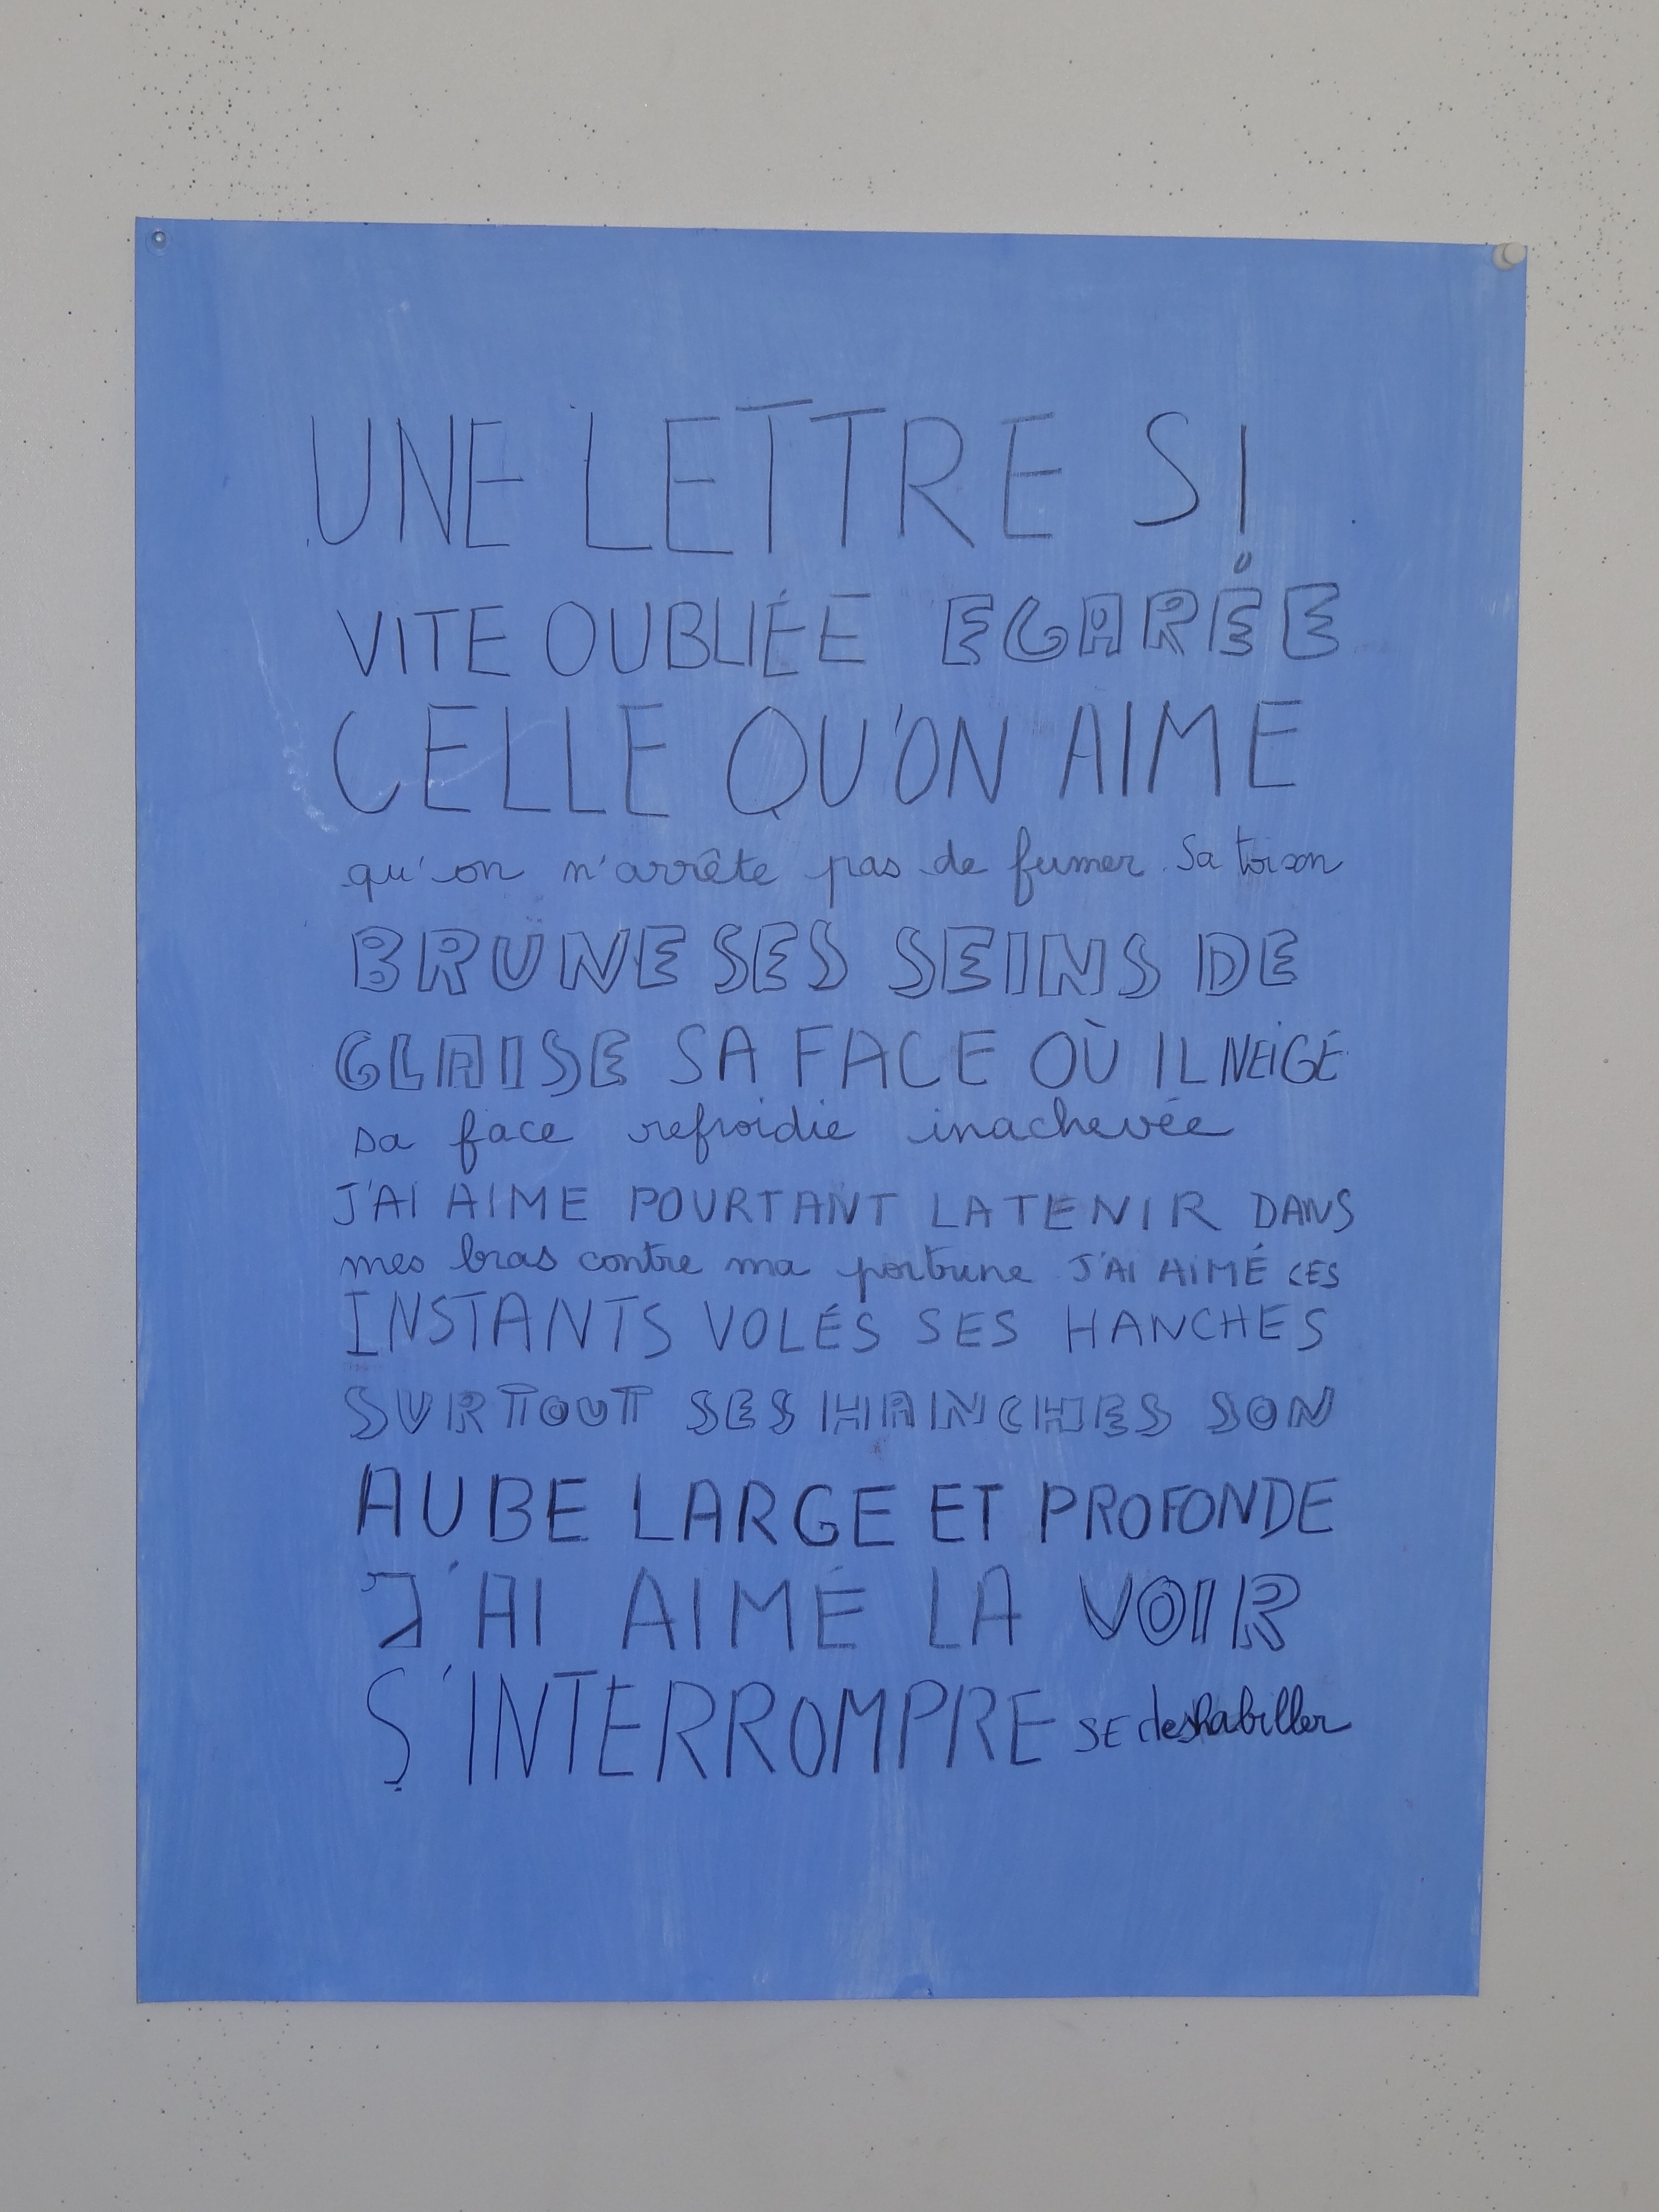 UNE LETTRE SI
VITE OUBLIÉE EGARÉE
CELLE QU'ON AIME
qu'on n'arrête pas de fumer. Sa toison
BRUNE SES SEINS DE
GLAISE SA FACE OÙ IL NEIGE
sa face refroidie inachevée
J'AI AIME POURTANT LA TENIR DANS
mes bras contre ma poitrine J'AI AIMÉ CES
INSTANTS VOLÉS SES HANCHES
SURTOUT SES HANCHES SON
AUBE LARGE ET PROFONDE
J'AI AIMÉ LA VOIR
S'INTERROMPRE SE deshabiller